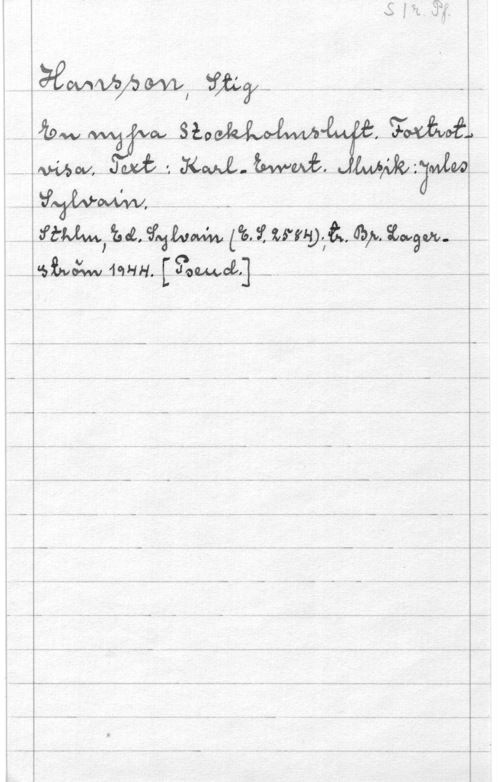 S 1 r. Pf.
Hansson, Stig
En nypa Stockholmsluft. Foxtrot-
visa. Text: Karl-Ewert. Musik: Jules
Sylvain.
Sthlm, Ed. Sylvain (E.S. 2584); tr. Br. Lager-
ström 1944. [Pseud.]